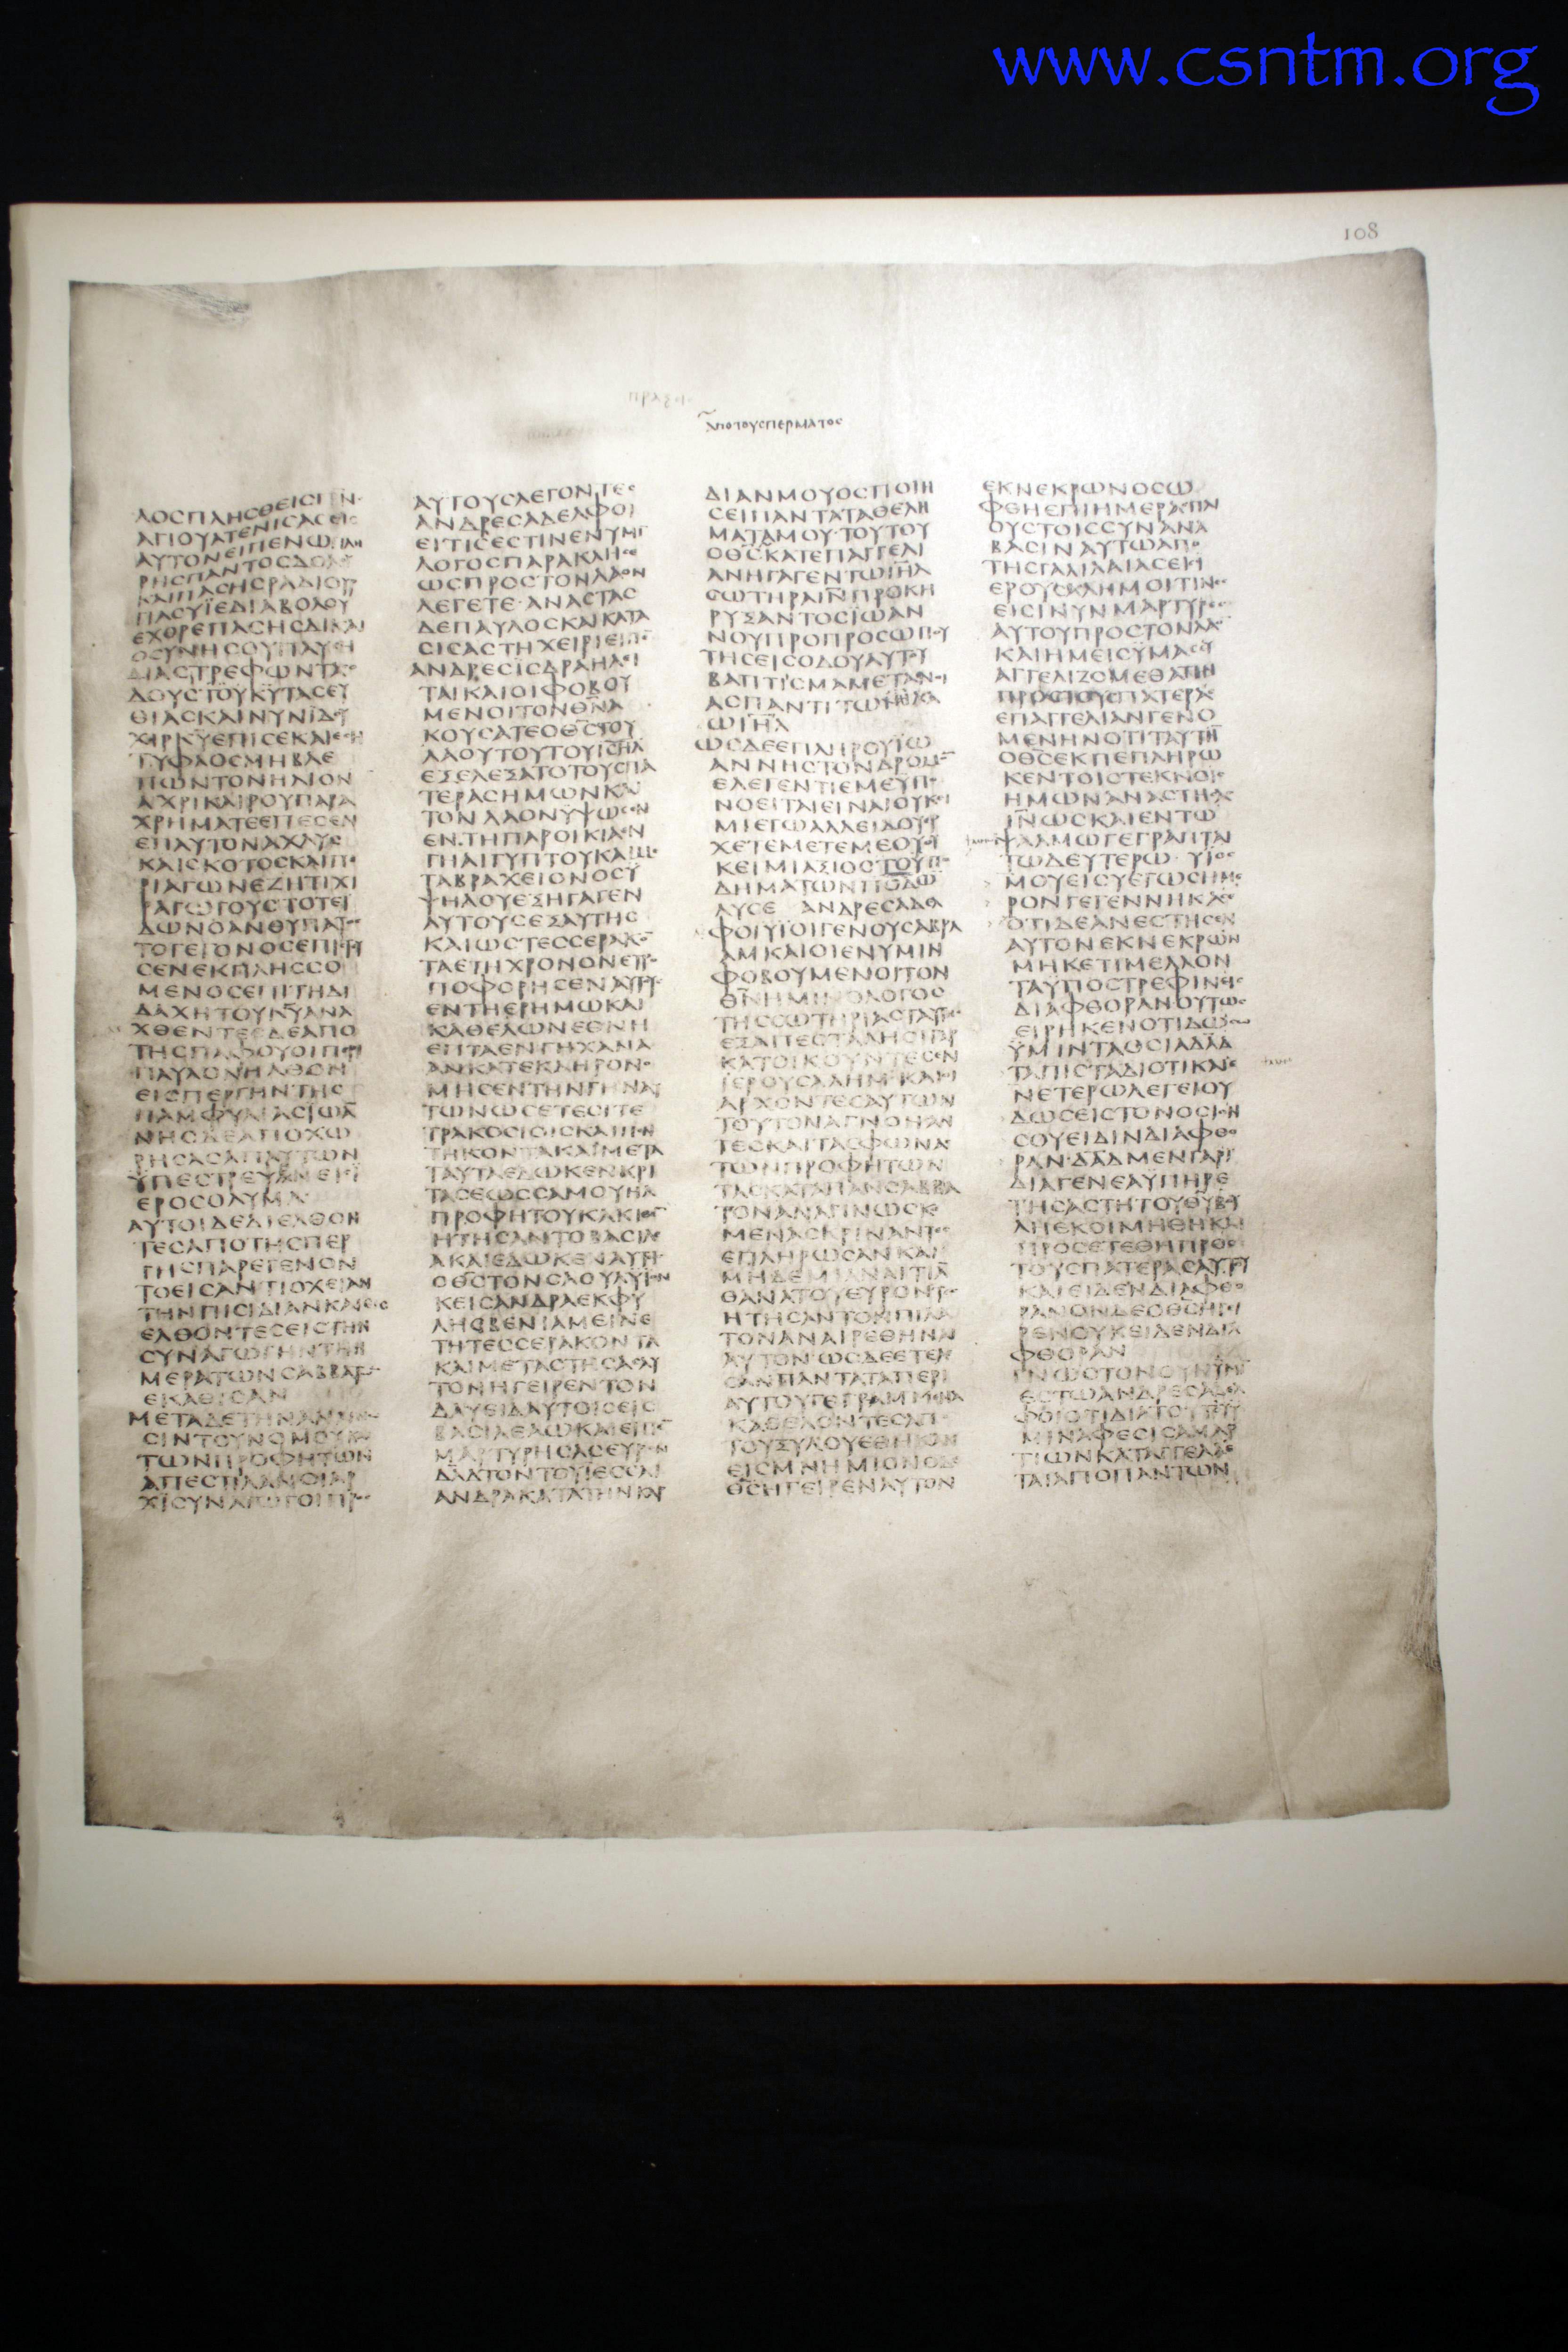 www.csntm.org
108
πραξις
ΑΠΟΤΟΥСΠΕΡΜΑΤΟС
ΛΟСΠΛΗСΘΕΙСΠΝ
ΑΓΙΟΥΑΤΕΝΙСΑСΕΙС
ΑΥΤΟΝΕΙΠΕΝΩ
ΡΗСΠΑΝΤΟСΔΟΛΟΥ
ΚΑΙΠΑСΗСΡΑΔΙΟΥΡ
ΠΑСΥΪΕΔΙΑΒΟΛΟΥ
ΕΧΘΡΕΠΑСΗСΔΙΚΑΙ
ΟСΥΝΗСΟΥΠΑΥСΗ
ΔΙΑСΤΡΕΦΩΝΤΑС
ΔΟΥСΤΟΥΚΥΤΑСΕΥ
ΘΙΑСΚΑΙΝΥΝΪΔΟΥ
ΧΙΡΚΥΕΠΙСΕΚΑΙΕСΗ
ΤΥΦΛΟСΜΗΒΛΕ
ΠΩΝΤΟΝΗΛΙΟΝ
ΑΧΡΙΚΑΙΡΟΥΠΑΡΑ
ΧΡΗΜΑΤΕΕΠΕСΕΝ
ΕΠΑΥΤΟΝΑΧΛΥС
ΚΑΙСΚΟΤΟСΚΑΙΠΕ
ΡΙΑΓΩΝΕΖΗΤΙΧΙ
ΡΑΓΩΓΟΥСΤΟΤΕΙ
ΔΩΝΟΑΝΘΥΠΑΤΟС
ΤΟΓΕΓΟΝΟСΕΠΙСΤΕΥ
СΕΝΕΚΠΛΗССΟ
ΜΕΝΟСΕΠΙΤΗΔΙ
ΔΑΧΗΤΟΥΚΥΑΝΑ
ΧΘΕΝΤΕСΔΕΑΠΟ
ΤΗСΠΑΦΟΥΟΙΠΕΡΙ
ΠΑΥΛΟΝΗΛΘΟΝ
ΕΙСΠΕΡΓΗΝΤΗС
ΠΑΜΦΥΛΙΑСΪΩΑ
ΝΗСΔΕΑΠΟΧΩ
ΡΗСΑСΑΠΑΥΤΩΝ
ΫΠΕСΤΡΕΨΕΝΕΙС
ΕΡΟСΟΛΥΜΑ
ΑΥΤΟΙΔΕΔΙΕΛΘΟΝ
ΤΕСΑΠΟΤΗСΠΕΡ
ΓΗСΠΑΡΕΓΕΝΟΝ
ΤΟΕΙСΑΝΤΙΟΧΕΙΑΝ
ΤΗΝΠΙСΙΔΙΑΝΚΑΙΕΙС
ΕΛΘΟΝΤΕСΕΙСΤΗΝ
СΥΝΑΓΩΓΗΝΤΗΗ
ΜΕΡΑΤΩΝСΑΒΒΑΤΩ
ΕΚΑΘΙСΑΝ
ΜΕΤΑΔΕΤΗΝΑΝΑΓΝΩ
СΙΝΤΟΥΝΟΜΟΥΚΑΙ
ΤΩΝΠΡΟΦΗΤΩΝ
ΑΠΕСΤΙΛΑΝΟΙΑΡ
ΧΙСΥΝΑΓΩΓΟΙΠΡΟС
ΑΥΤΟΥСΛΕΓΟΝΤΕС
ΑΝΔΡΕСΑΔΕΛΦΟΙ
ΕΙΤΙСΕСΤΙΝΕΝΥΜΙ
ΛΟΓΟСΠΑΡΑΚΛΗСΕ
ΩСΠΡΟСΤΟΝΛΑΟΝ
ΛΕΓΕΤΕ·ΑΝΑСΤΑС
ΔΕΠΑΥΛΟСΚΑΙΚΑΤΑ
СΙСΑСΤΗΧΕΙΡΙΕΙΠΕ
ΑΝΔΡΕСΪСΔΡΑΗΛΙ
ΤΑΙΚΑΙΟΙΦΟΒΟΥ
ΜΕΝΟΙΤΟΝΘΝΑ
ΚΟΥСΑΤΕΟΘСΤΟΥ
ΛΑΟΥΤΟΥΤΟΥΙСΗΛ
ΕΞΕΛΕΞΑΤΟΤΟΥСΠΑ
ΤΕΡΑСΗΜΩΝΚΑΙ
ΤΟΝΛΑΟΝΥΨΩСΕΝ
ΕΝΤΗΠΑΡΟΙΚΙΑΕΝ
ΓΗΑΙΓΥΠΤΟΥΚΑΙΜΕ
ΤΑΒΡΑΧΕΙΟΝΟСΥ
ΨΗΛΟΥΕΞΗΓΑΓΕΝ
ΑΥΤΟΥСΕΞΑΥΤΗС
ΚΑΙΩСΤΕССΕΡΑΚΟ
ΤΑΕΤΗΧΡΟΝΟΝΕΤΡ
ΠΟΦΟΡΗСΕΝΑΥΤΟΥ
ΕΝΤΗΕΡΗΜΩΚΑΙ
ΚΑΘΕΛΩΝΕΘΝΗ
ΕΠΤΑΕΝΓΗΧΑΝΑ
ΑΝΚΑΤΕΚΛΗΡΟΝΟ
ΜΗСΕΝΤΗΝΓΗΝΑΥ
ΤΩΝΩСΕΤΕСΙΤΕ
ΤΡΑΚΟСΙΟΙСΚΑΙΠΕΝ
ΤΗΚΟΝΤΑΚΑΙΜΕΤΑ
ΤΑΥΤΑΕΔΩΚΕΝΚΡΙ
ΤΑСΕΩССΑΜΟΥΗΛ
ΠΡΟΦΗΤΟΥΚΑΚΙΘΕ
ΗΤΗСΑΝΤΟΒΑСΙΛΕ
ΑΚΑΙΕΔΩΚΕΝΑΥΤΟΙ
ΟΘСΤΟΝСΑΟΥΛΥΪΟΝ
ΚΕΙСΑΝΔΡΑΕΚΦΥ
ΛΗСΒΕΝΙΑΜΕΙΝΕ
ΤΗΤΕССΕΡΑΚΟΝΤΑ
ΚΑΙΜΕΤΑСΤΗСΑСΑΥ
ΤΟΝΗΓΕΙΡΕΝΤΟΝ
ΔΑΥΕΙΔΑΥΤΟΙСΕΙС
ΒΑСΙΛΕΑΩΚΑΙΕΙΠΕ
ΜΑΡΤΥΡΗСΑСΕΥΡΟΝ
ΔΑΔΤΟΝΤΟΥΪΕССΑΙ
ΑΝΔΡΑΚΑΤΑΤΗΝΚΑΡ
ΔΙΑΝΜΟΥΟСΠΟΙΗ
СΕΙΠΑΝΤΑΤΑΘΕΛΗ
ΜΑΤΑΜΟΥ·ΤΟΥΤΟΥ
ΟΘСΚΑΤΕΠΑΓΓΕΛΙ
ΑΝΗΓΑΓΕΝΤΩΙΗΛ
СΩΤΗΡΑΙΝΠΡΟΚΗ
ΡΥΞΑΝΤΟСΪΩΑΝ
ΝΟΥΠΡΟΠΡΟСΩΠΟΥ
ΤΗСΕΙСΟΔΟΥΑΥΤΟΥ
ΒΑΠΤΙСΜΑΜΕΤΑΝΟΙ
ΑСΠΑΝΤΙΤΩΛΑ
ΩΙΗΛ
ΩСΔΕΕΠΛΗΡΟΥΪΩ
ΑΝΝΗСΤΟΝΔΡΟΜΟ
ΕΛΕΓΕΝΤΙΕΜΕΥΠΟ
ΝΟΕΙΤΑΙΕΙΝΑΙΟΥΚΕΙ
ΜΙΕΓΩΑΛΛΕΙΔΟΥΕΡ
ΧΕΤΕΜΕΤΕΜΕΟΥΟΥ
ΚΕΙΜΙΑΞΙΟСΤΟΥΠΟ
ΔΗΜΑΤΩΝΠΟΔΩ
ΛΥСΕ ΑΝΔΡΕСΑΔΕΛ
ΦΟΙΥΪΟΙΓΕΝΟΥСΑΒΡΑ
ΑΜΚΑΙΟΙΕΝΥΜΙΝ
ΦΟΒΟΥΜΕΝΟΙΤΟΝ
ΘΝΗΜΙΝΟΛΟΓΟС
ΤΗССΩΤΗΡΙΑСΤΑΥΤΗС
ΕΞΑΠΕСΤΑΛΗΟΙΓΑΡ
ΚΑΤΟΙΚΟΥΝΤΕСΕΝ
ΪΕΡΟΥСΑΛΗΜΚΑΙΟΙ
ΑΡΧΟΝΤΕСΑΥΤΩΝ
ΤΟΥΤΟΝΑΓΝΟΗСΑΝ
ΤΕСΚΑΙΤΑСΦΩΝΑС
ΤΩΝΠΡΟΦΗΤΩΝ
ΤΑСΚΑΤΑΠΑΝСΑΒΒΑ
ΤΟΝΑΝΑΓΙΝΩСΚΟ
ΜΕΝΑСΚΡΙΝΑΝΤΕС
ΕΠΛΗΡΩСΑΝΚΑΙ
ΜΗΔΕΜΙΑΝΑΙΤΙΑ
ΘΑΝΑΤΟΥΕΥΡΟΝΤΕС
ΗΤΗСΑΝΤΟΝΠΙΛΑ
ΤΟΝΑΝΑΙΡΕΘΗΝΑΙ
ΑΥΤΟΝΩСΔΕΕΤΕΛΕ
СΑΝΠΑΝΤΑΤΑΠΕΡΙ
ΑΥΤΟΥΓΕΓΡΑΜΜΕΝΑ
ΚΑΘΕΛΟΝΤΕСΑΠΟ
ΤΟΥΞΥΛΟΥΕΘΗΚΑΝ
ΕΙСΜΝΗΜΙΟΝΟΔΕ
ΘСΗΓΕΙΡΕΝΑΥΤΟΝ
ΕΚΝΕΚΡΩΝΟСΩ
ΦΘΗΕΠΙΗΜΕΡΑСΠΛΙ
ΟΥСΤΟΙССΥΝΑΝΑ
ΒΑСΙΝΑΥΤΩΑΠΟ
ΤΗСΓΑΛΙΛΑΙΑСΕΙСΪ
ΕΡΟΥСΑΛΗΜΟΙΤΙΝΕС
ΕΙСΙΝΥΝΜΑΡΤΥΡΕС
ΑΥΤΟΥΠΡΟСΤΟΝΛΑΟ
ΚΑΙΗΜΕΙСΥΜΑСΕΥ
ΑΓΓΕΛΙΖΟΜΕΘΑΤΗΝ
ΠΡΟСΤΟΥСΠΑΤΕΡΑС
ΕΠΑΓΓΕΛΙΑΝΓΕΝΟ
ΜΕΝΗΝΟΤΙΤΑΥΤΗ
ΟΘСΕΚΠΕΠΛΗΡΩ
ΚΕΝΤΟΙСΤΕΚΝΟΙС
ΗΜΩΝΑΝΑСΤΗСΑС
ΙΝΩСΚΑΙΕΝΤΩ
ΨΑΛΜΩΓΕΓΡΑΠΤΑΙ
ΤΩΔΕΥΤΕΡΩ·ΥΪΟС
ΜΟΥΕΙСΥΕΓΩСΗΜΕ
ΡΟΝΓΕΓΕΝΝΗΚΑСΕ
ΟΤΙΔΕΑΝΕСΤΗСΕΝ
ΑΥΤΟΝΕΚΝΕΚΡΩΝ
ΜΗΚΕΤΙΜΕΛΛΟΝ
ΤΑΫΠΟСΤΡΕΦΙΝΕΙС
ΔΙΑΦΘΟΡΑΝΟΥΤΩС
ΕΙΡΗΚΕΝΟΤΙΔΩСΩ
ΫΜΙΝΤΑΟСΙΑΔΑΔ
ΤΑΠΙСΤΑΔΙΟΤΙΚΑΙΕ
ΝΕΤΕΡΩΛΕΓΕΙΟΥ
ΔΩСΕΙСΤΟΝΟСΙΟΝ
СΟΥΕΙΔΙΝΔΙΑΦΘΟ
ΡΑΝ·ΔΑΔΜΕΝΓΑΡΙ
ΔΙΑΓΕΝΕΑΫΠΗΡΕ
ΤΗСΑСΤΗΤΟΥΘΥΒΟΥ
ΛΗΕΚΟΙΜΗΘΗΚΑΙ
ΠΡΟСΕΤΕΘΗΠΡΟС
ΤΟΥСΠΑΤΕΡΑСΑΥΤΟΥ
ΚΑΙΕΙΔΕΝΔΙΑΦΘΟ
ΡΑΝΟΝΔΕΟΘСΗΓΕΙ
ΡΕΝΟΥΚΕΙΔΕΝΔΙΑ
ΦΘΟΡΑΝ
ΓΝΩСΤΟΝΟΥΝΥΜΙ
ΕСΤΩΑΝΔΡΕСΑΔΕΛ
ΦΟΙΟΤΙΔΙΑΤΟΥΤΟΥΥ
ΜΙΝΑΦΕСΙСΑΜΑΡ
ΤΙΩΝΚΑΤΑΓΓΕΛΛΕ
ΤΑΙΑΠΟΠΑΝΤΩΝ